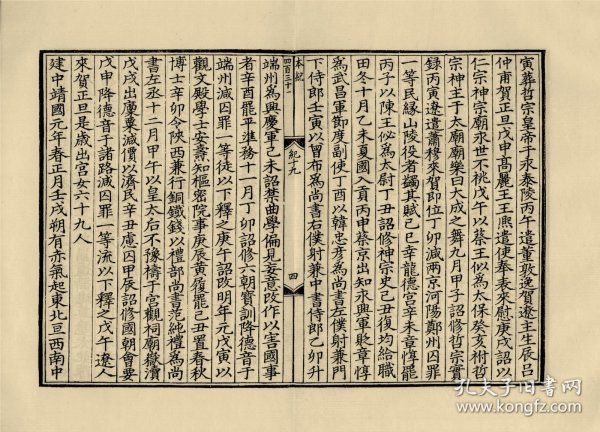 寅葬哲宗皇帝于永泰陵丙午遣董敦逸賀遼主生辰呂
仲甫賀正旦戊申高麗王王熙遣使奉表來慰庚戌詔以
仁宗神宗廟永世不祧戊午以蔡王似為太保癸亥祔哲
宗神主于太廟廟樂曰大成之舞九月甲子詔修哲宗實
録丙寅遼遣蕭穆來賀即位丁卯減兩京河陽鄭州囚罪
一等民緣山陵役者蠲其賦己巳幸龍德宮辛未章惇罷
丙子以陳王佖為太尉丁丑詔修神宗史己丑復均給職
田冬十月乙未夏國入貢丙申蔡京出知永興軍貶章惇
為武昌軍節度副使丁酉以韓忠彥為尚書左僕射兼門
下侍郎壬寅以曾布為尚書右僕射兼中書侍郎乙卯升
本紀
四百三十二
紀十九
四
端州為興慶軍己未詔禁曲學偏見妄意改作以害國事
者辛酉罷平準務十一月丁卯詔修六朝寶訓降德音于
端州減囚罪一等徒以下釋之庚午詔改明年元戊寅以
觀文殿學士安燾知樞密院事庚辰黃履罷己丑置春秋
博士辛卯令陝西兼行銅鐵錢以禮部尚書范純禮為尚
書右丞十二月甲午以皇太后不豫禱于宮觀祠廟嶽瀆
戊戌出廩粟減價以濟民辛丑慮囚甲辰詔修國朝會要
戊申降德音于諸路減囚罪一等流以下釋之戊午遼人
來賀正旦是歲出宮女六十九人
建中靖國元年春正月壬戌朔有赤氣起東北亘西南中
孔夫子旧书网
www.kongfz.com